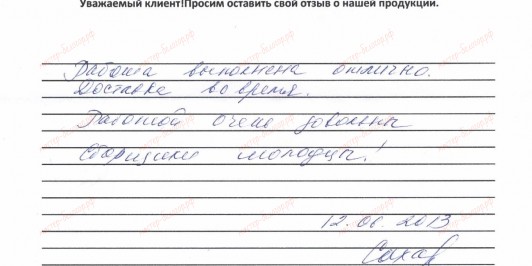 Уважаемый клиент!Просим оставить свой отзыв о нашей продукции.
Работа выполнена отлично.
Доставка во время.
Работой очень довольны
Сборщики молодцы!
12.06.2013